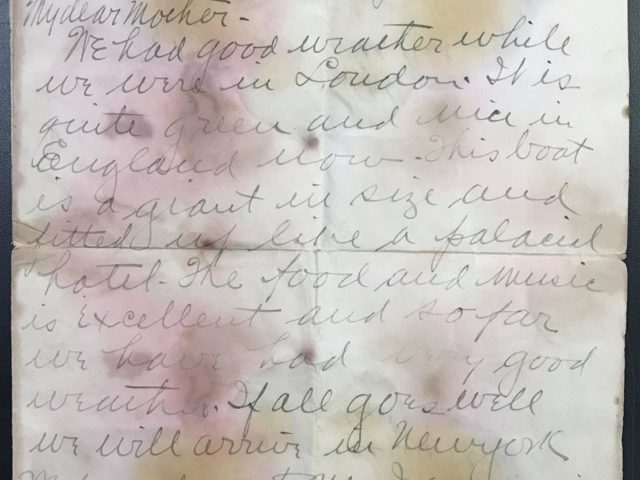 My dear Mother -
We had good weather while
we were in London. It is
quite green and nice in
England now. This boat
is a giant in size and
fitted up like a palacial
hotel. The food and music
is excellent and so far
we have had very good
weather. If all goes well
we will arrive in New York